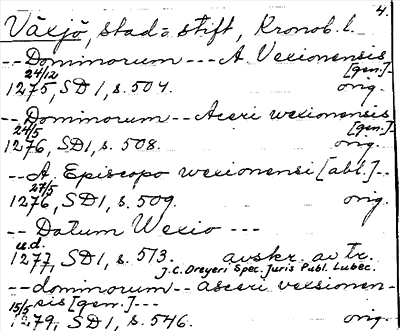 4.
Växjö, stad o stift, Kronob. l.
-- Dominorum --- A. Vexionensis
[gen.] -
24/12
1275, SD1, s. 504. orig.
-- Dominorum -- Aceri wexionensis
[gen.] -
24/5
1276, SD1, s. 508. orig.
-- A. Episcopo wexionensi [abl.] --
27/5
1276, SD1, s. 509. orig.
-- Datum Wexio ---
u.d.
1277, SD1, s. 513. avskr. av tr.
J.C. Dreyeri Spec. Juris Publ. Lubec.
-- dominorum -- asceri vexsionen-
sis [gen.] ---
15/5
1279, SD1, s. 546. orig.